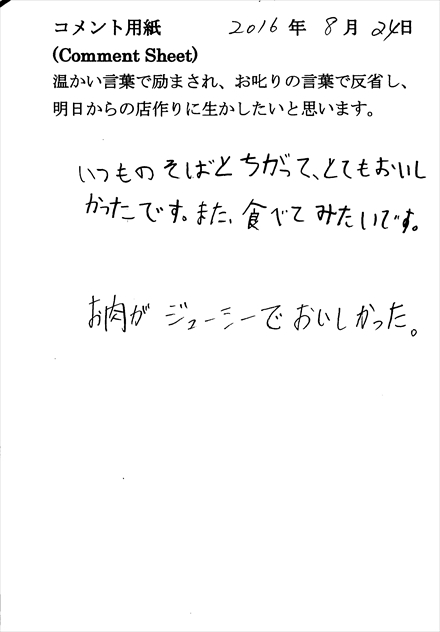 コメント用紙 2016 年 8 月 24日
(Comment Sheet)
温かい言葉で励まされ、お叱りの言葉で反省し、
明日からの店作りに生かしたいと思います。
いつものそばとちがって、とてもおいし
かったです。また、食べてみたいです。
お肉がジューシーでおいしかった。